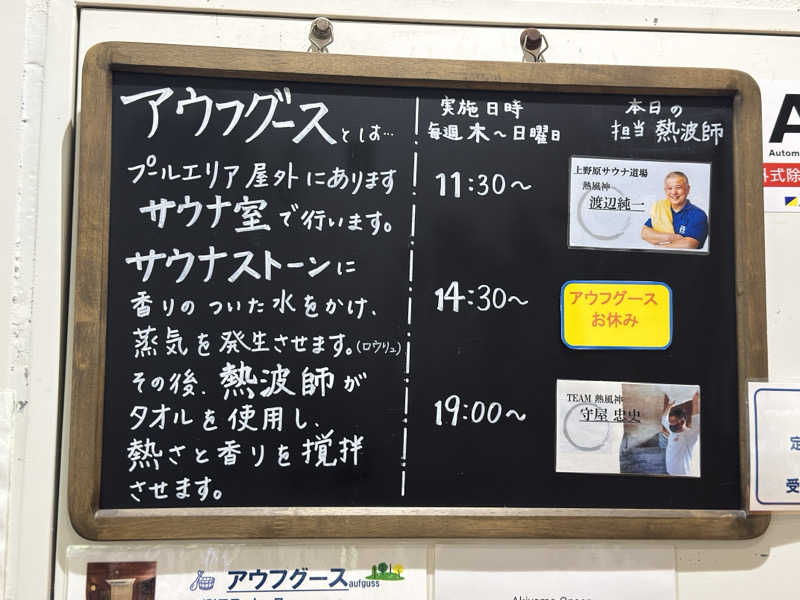 アウフグースとしは…
プールエリア屋外にあります
サウナ室で行います。
サウナストーンに
香りのついた水をかけ、
蒸気を発生させます。(ロウリュ)
その後、熱波師が
タオルを使用し、
熱さと香りを撹拌
させます。
実施日時
毎週木～日曜日
本日の
担当 熱波師
11:30～
上野原サウナ道場
熱風神
渡辺純一
14:30～
アウフグース
お休み
19:00～
TEAM 熱風神
守屋 忠史
A
Autom
外式除
定
受
アウフグースaufguss